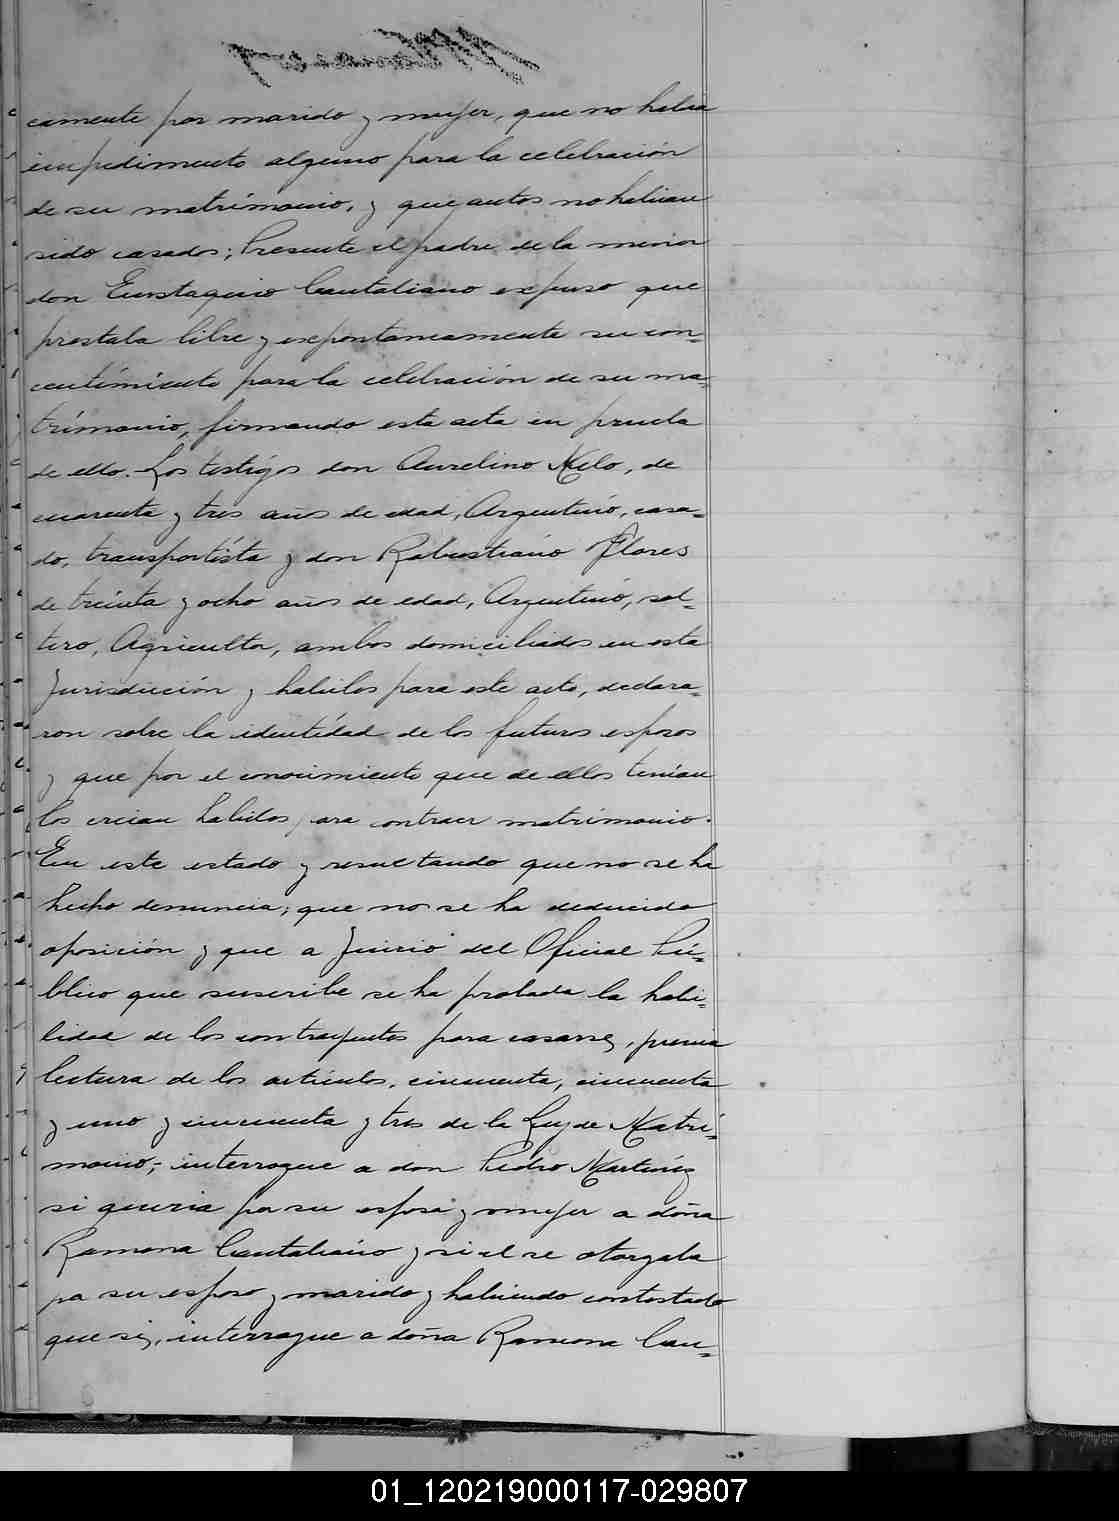 camente por marido y mujer, que no habia
impedimento alguno para la celebración
de su matrimonio, y que antes no habian
sido casados; Presente el padre de la menor
don Eustaquio Cantaliano expuso que
prestaba libre y expontaneamente su con=
centimiento para la celebración de su ma=
trimonio, firmando esta acta en prueba
de ello. Los testigos don Aurelino Melo, de
cuarenta y tres años de edad, Argentino, casa=
do, transportista y don Robustiano Flores
de treinta y ocho años de edad, Argentino, sol=
tero, Agricultor, ambos domiciliados en esta
Jurisdicción y habiles para este acto, declara=
ron sobre la identidad de los futuros esposos
y que por el conocimiento que de ellos tenian
los creian habiles para contraer matrimonio.
En este estado y resultando que no se ha
hecho denuncia; que no se ha deducido
oposición y que a Juicio del Oficial Pú=
blico que suscribe se ha probada la habi=
lidad de los contrayentes para casarse, previa
lectura de los articulos, cincuenta, cincuenta
y uno y cincuenta y tres de la Ley de Matri=
monio; interrogue a don Pedro Martinez
si queria por su esposa y mujer a doña
Ramona Cantaliano y si el se otorgaba
por su esposo y marido y habiendo contestado
que si, interrogue a doña Ramona Can=
01_120219000117-029807